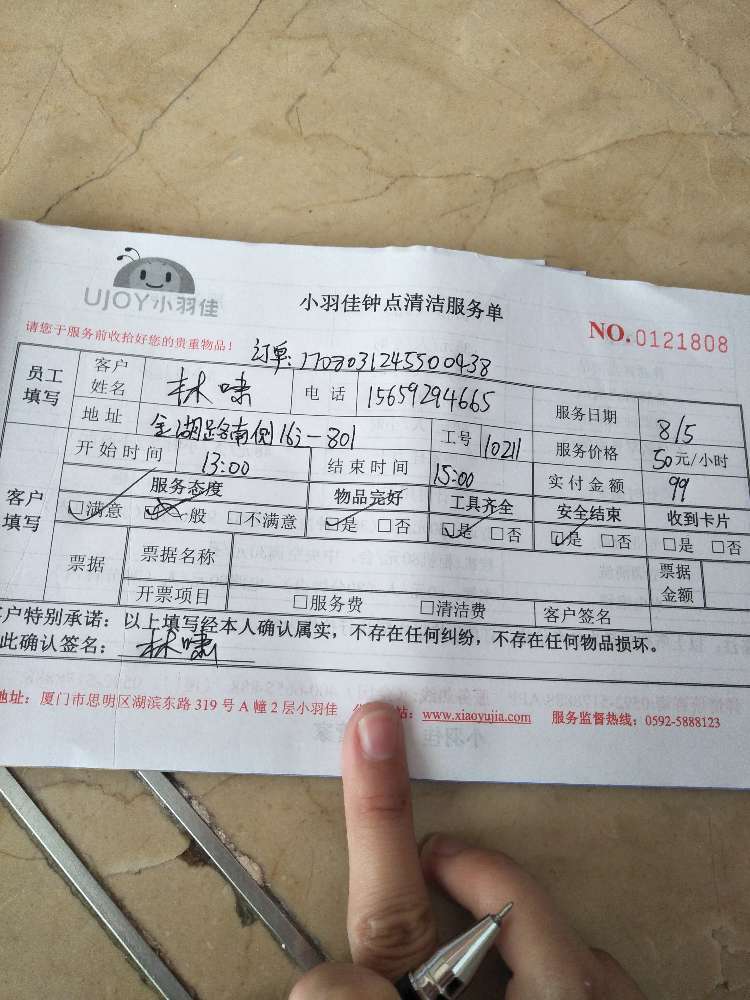 UJOY小羽佳
小羽佳钟点清洁服务单
NO.0121808
请您于服务前收拾好您的贵重物品!
订单:
员工填写 客户姓名 林啸 电话 15659294665 服务日期 8/5
地址 金湖路南侧163-801 工号 10211 服务价格 50元/小时
客户填写 开始时间 13:00 结束时间 15:00 实付金额 99
服务态度 物品完好 工具齐全 安全结束 收到卡片
□满意 □一般 □不满意 □是 □否 □是 □否 □是 □否 □是 □否
票据 票据名称 票据金额
开票项目 □服务费 □清洁费 客户签名
户特别承诺:以上填写经本人确认属实,不存在任何纠纷,不存在任何物品损坏。
此确认签名:林啸
地址:厦门市思明区湖滨东路 319 号 A 幢 2 层小羽佳 站:www.xiaoyujia.com 服务监督热线:0592-5888123